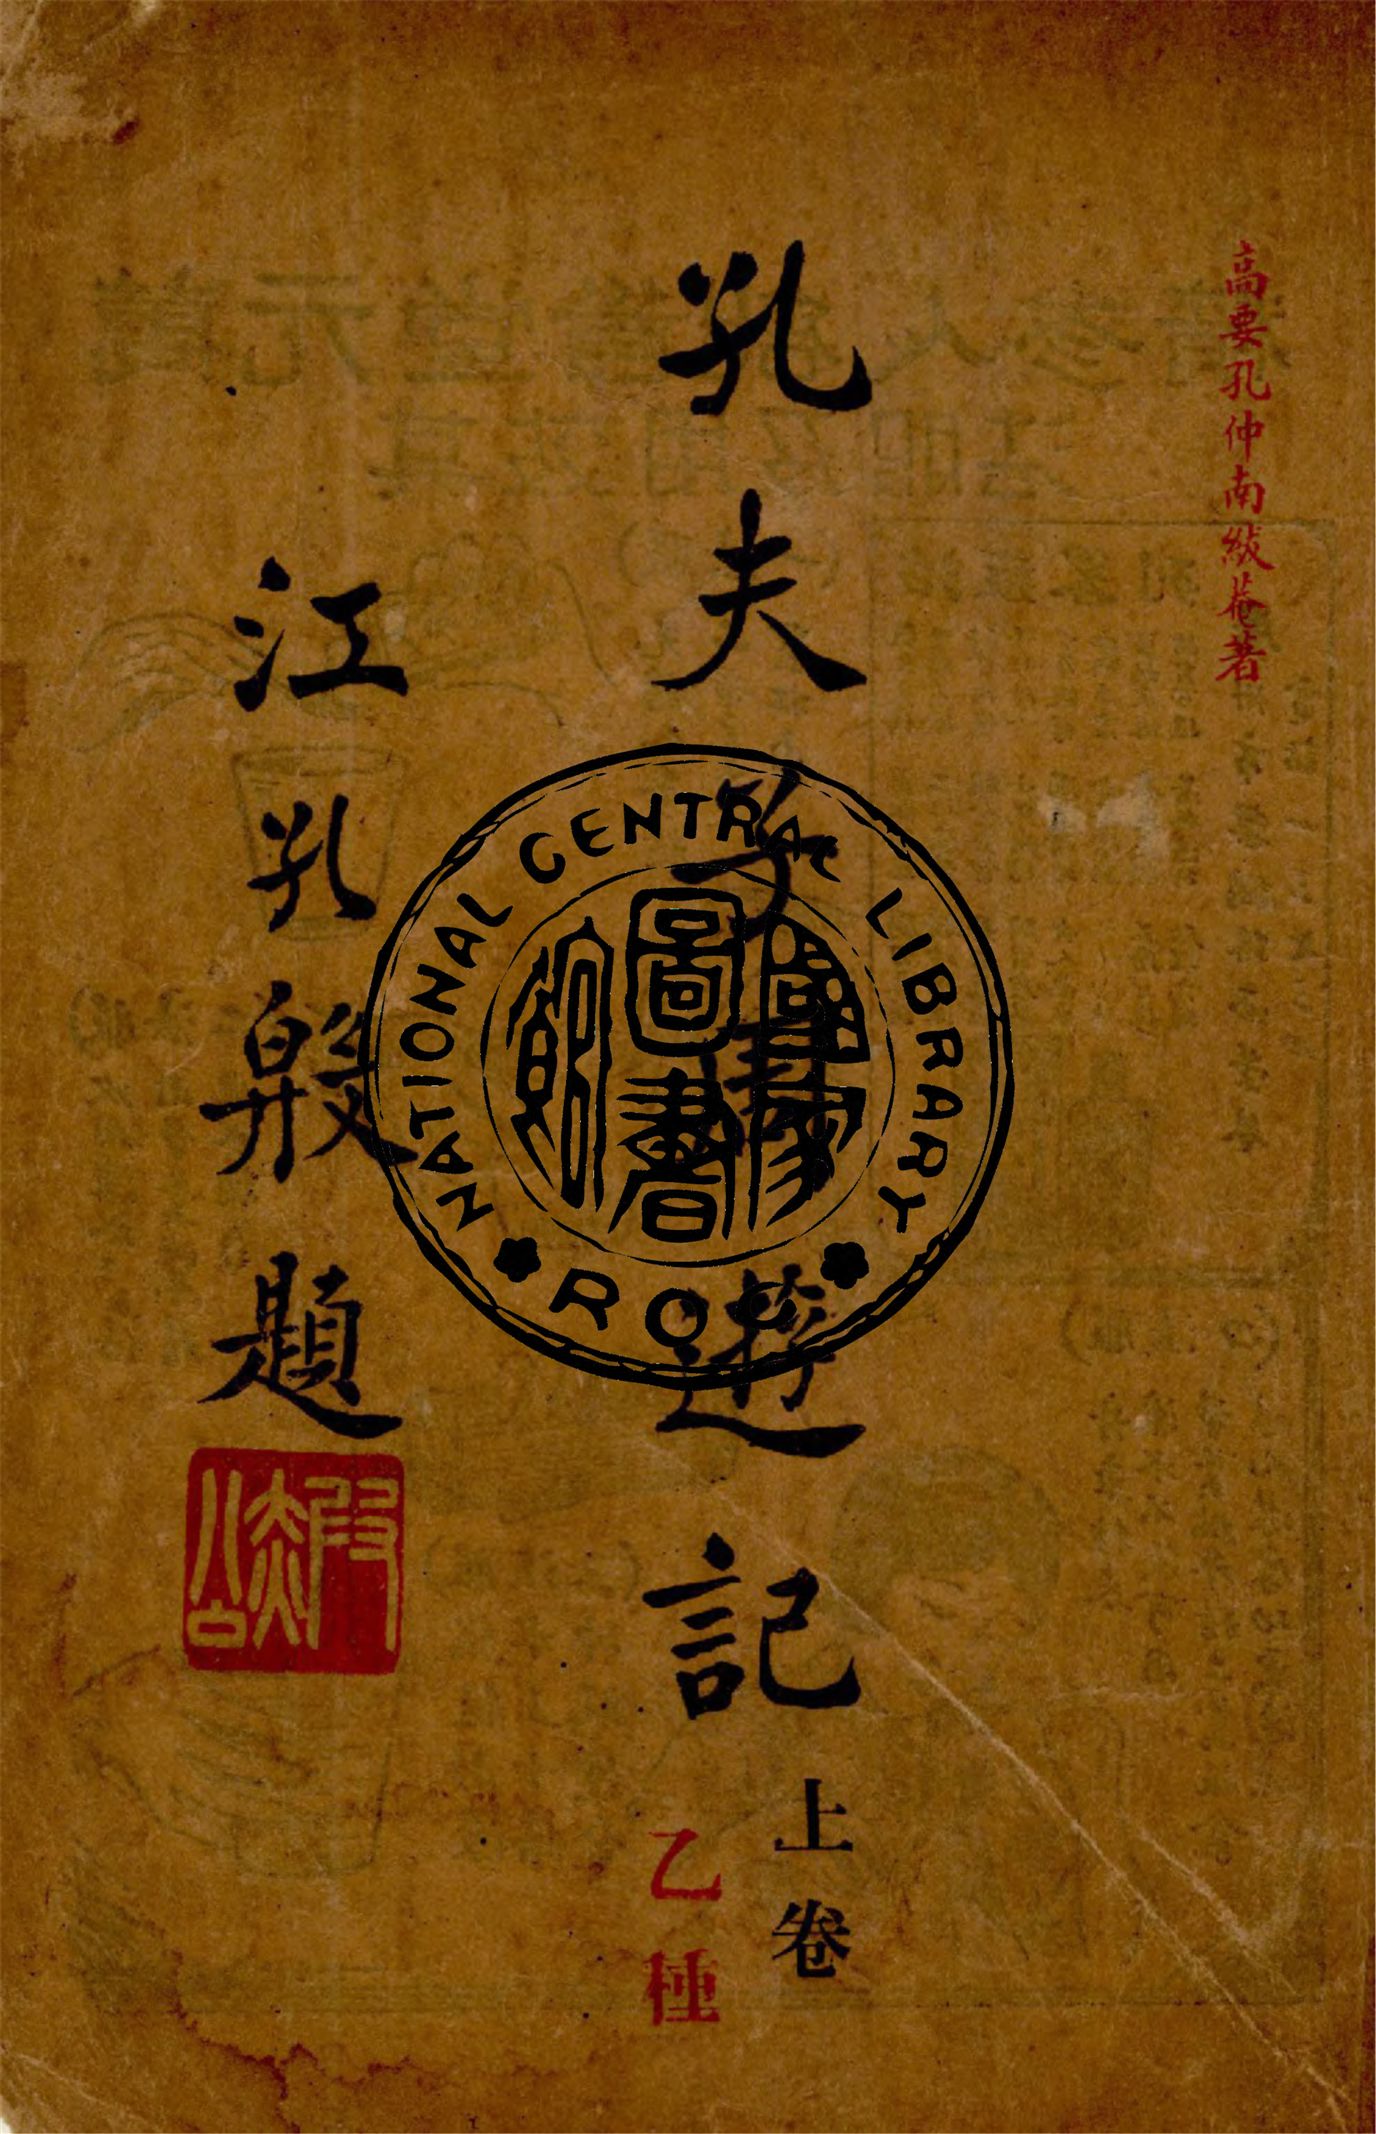 高要孔仲南紱菴著
孔夫子西遊記
上卷
乙種
江孔殷題
NATIONAL CENTRAL LIBRARY
國家圖書館
ROC